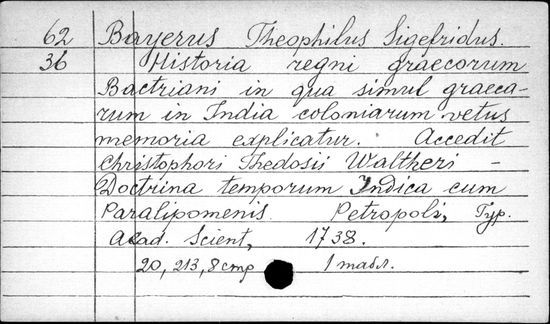 62 Bayerus Theophilus Sigefridus.
36 Historia regni graecorum
Bactriani in qua simul graeca-
rum in India coloniarum vetus
memoria explicatur. Accedit
Christophori Thedosii Waltheri -
Doctrina temporum Indica cum
Paralipomenis. Petropoli, Typ.
Acad. Scient, 1738.
20, 213, 8 стр 1 табл.